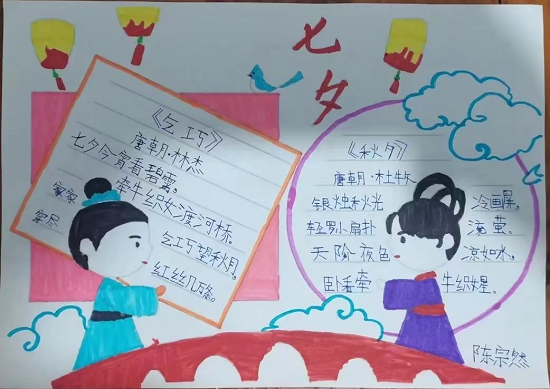 七夕
《乞巧》
唐朝·林杰
七夕今宵看碧霄。
牵牛织女渡河桥。
家家 乞巧望秋月。
红丝几万条。
《秋夕》
唐朝·杜牧
银烛秋光 冷画屏。
轻罗小扇扑 流萤。
天阶夜色 凉如水。
卧看牵 牛织女星。
陈宗然